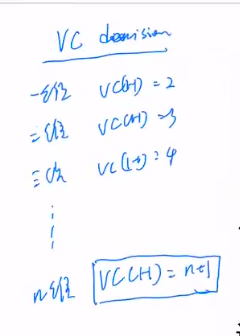 VC demision
一维 VC(H) = 2
二维 VC(H) = 3
三维 VC(H) = 4
n维 VC(H) = n+1